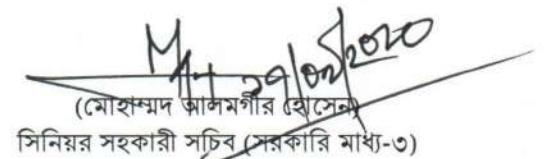 ২৭/০২/২০২০
(মোহাম্মদ আলমগীর হোসেন)
সিনিয়র সহকারী সচিব (সরকারি মাধ্য-৩)